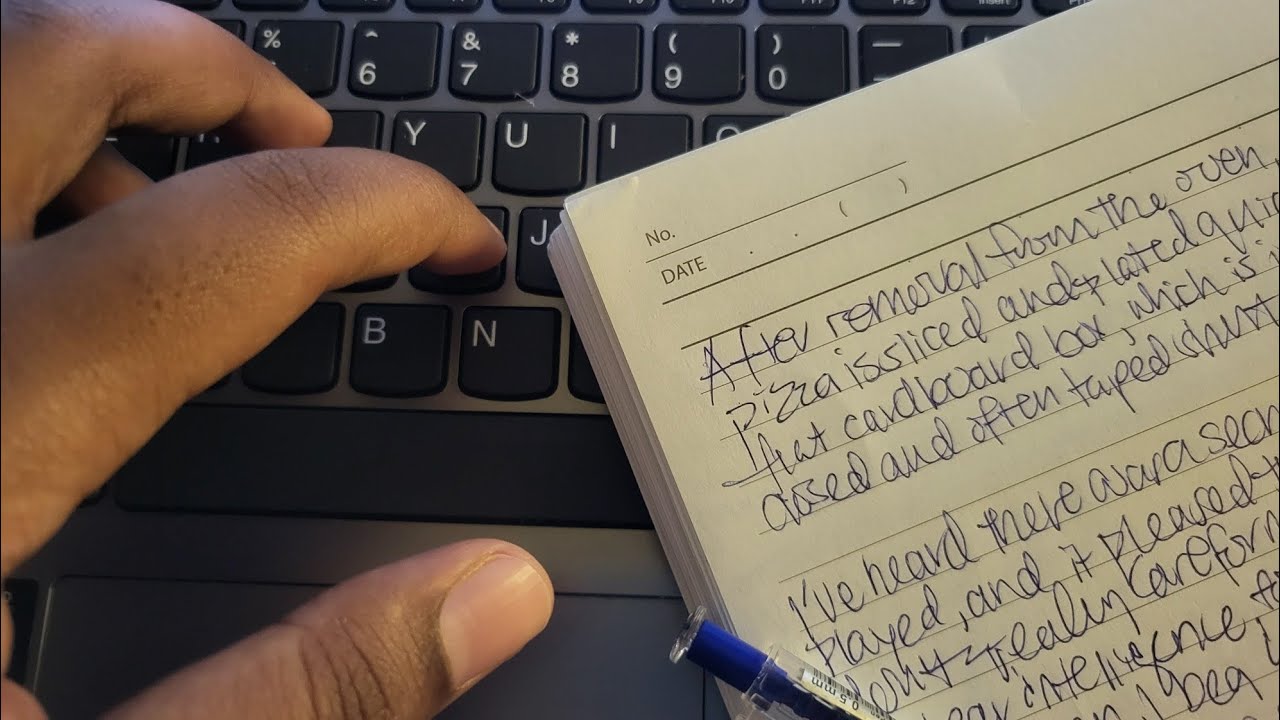 % ^ & * ( ) —
6 7 8 9 0
Y U I
J
B N
No.
DATE . . ( )
After removal from the oven,
pizza is sliced and plated
flat cardboard box, which is
closed and often taped shut
I've heard there was a
played, and it pleased
really care for
0.5 mm